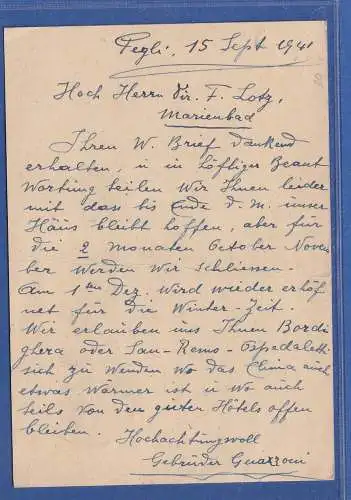 Pegli, 15 Sept 1941
Hoch Herrn Dir. F. Lotz,
Marienbad
Ihren W. Brief dankend
erhalten, u in höfliger Beant
wortung teilen Wir Ihnen leider
mit dass bis Ende d. M. unser
Haus bleibt hoffen, aber für
die 2 monaten October Novem
ber werden wir schliessen.
Am 1ten Dez. wird wieder eröf
net für die Winter-Zeit.
Wir erlauben uns Ihnen Bordi
ghera oder San-Remo-Ospedaletti
sich zu wenden wo das Clima auch
etwas wärmer ist u wo auch
teils von den guten Hôtels offen
bleiben. Hochachtungsvoll
Gebrüder